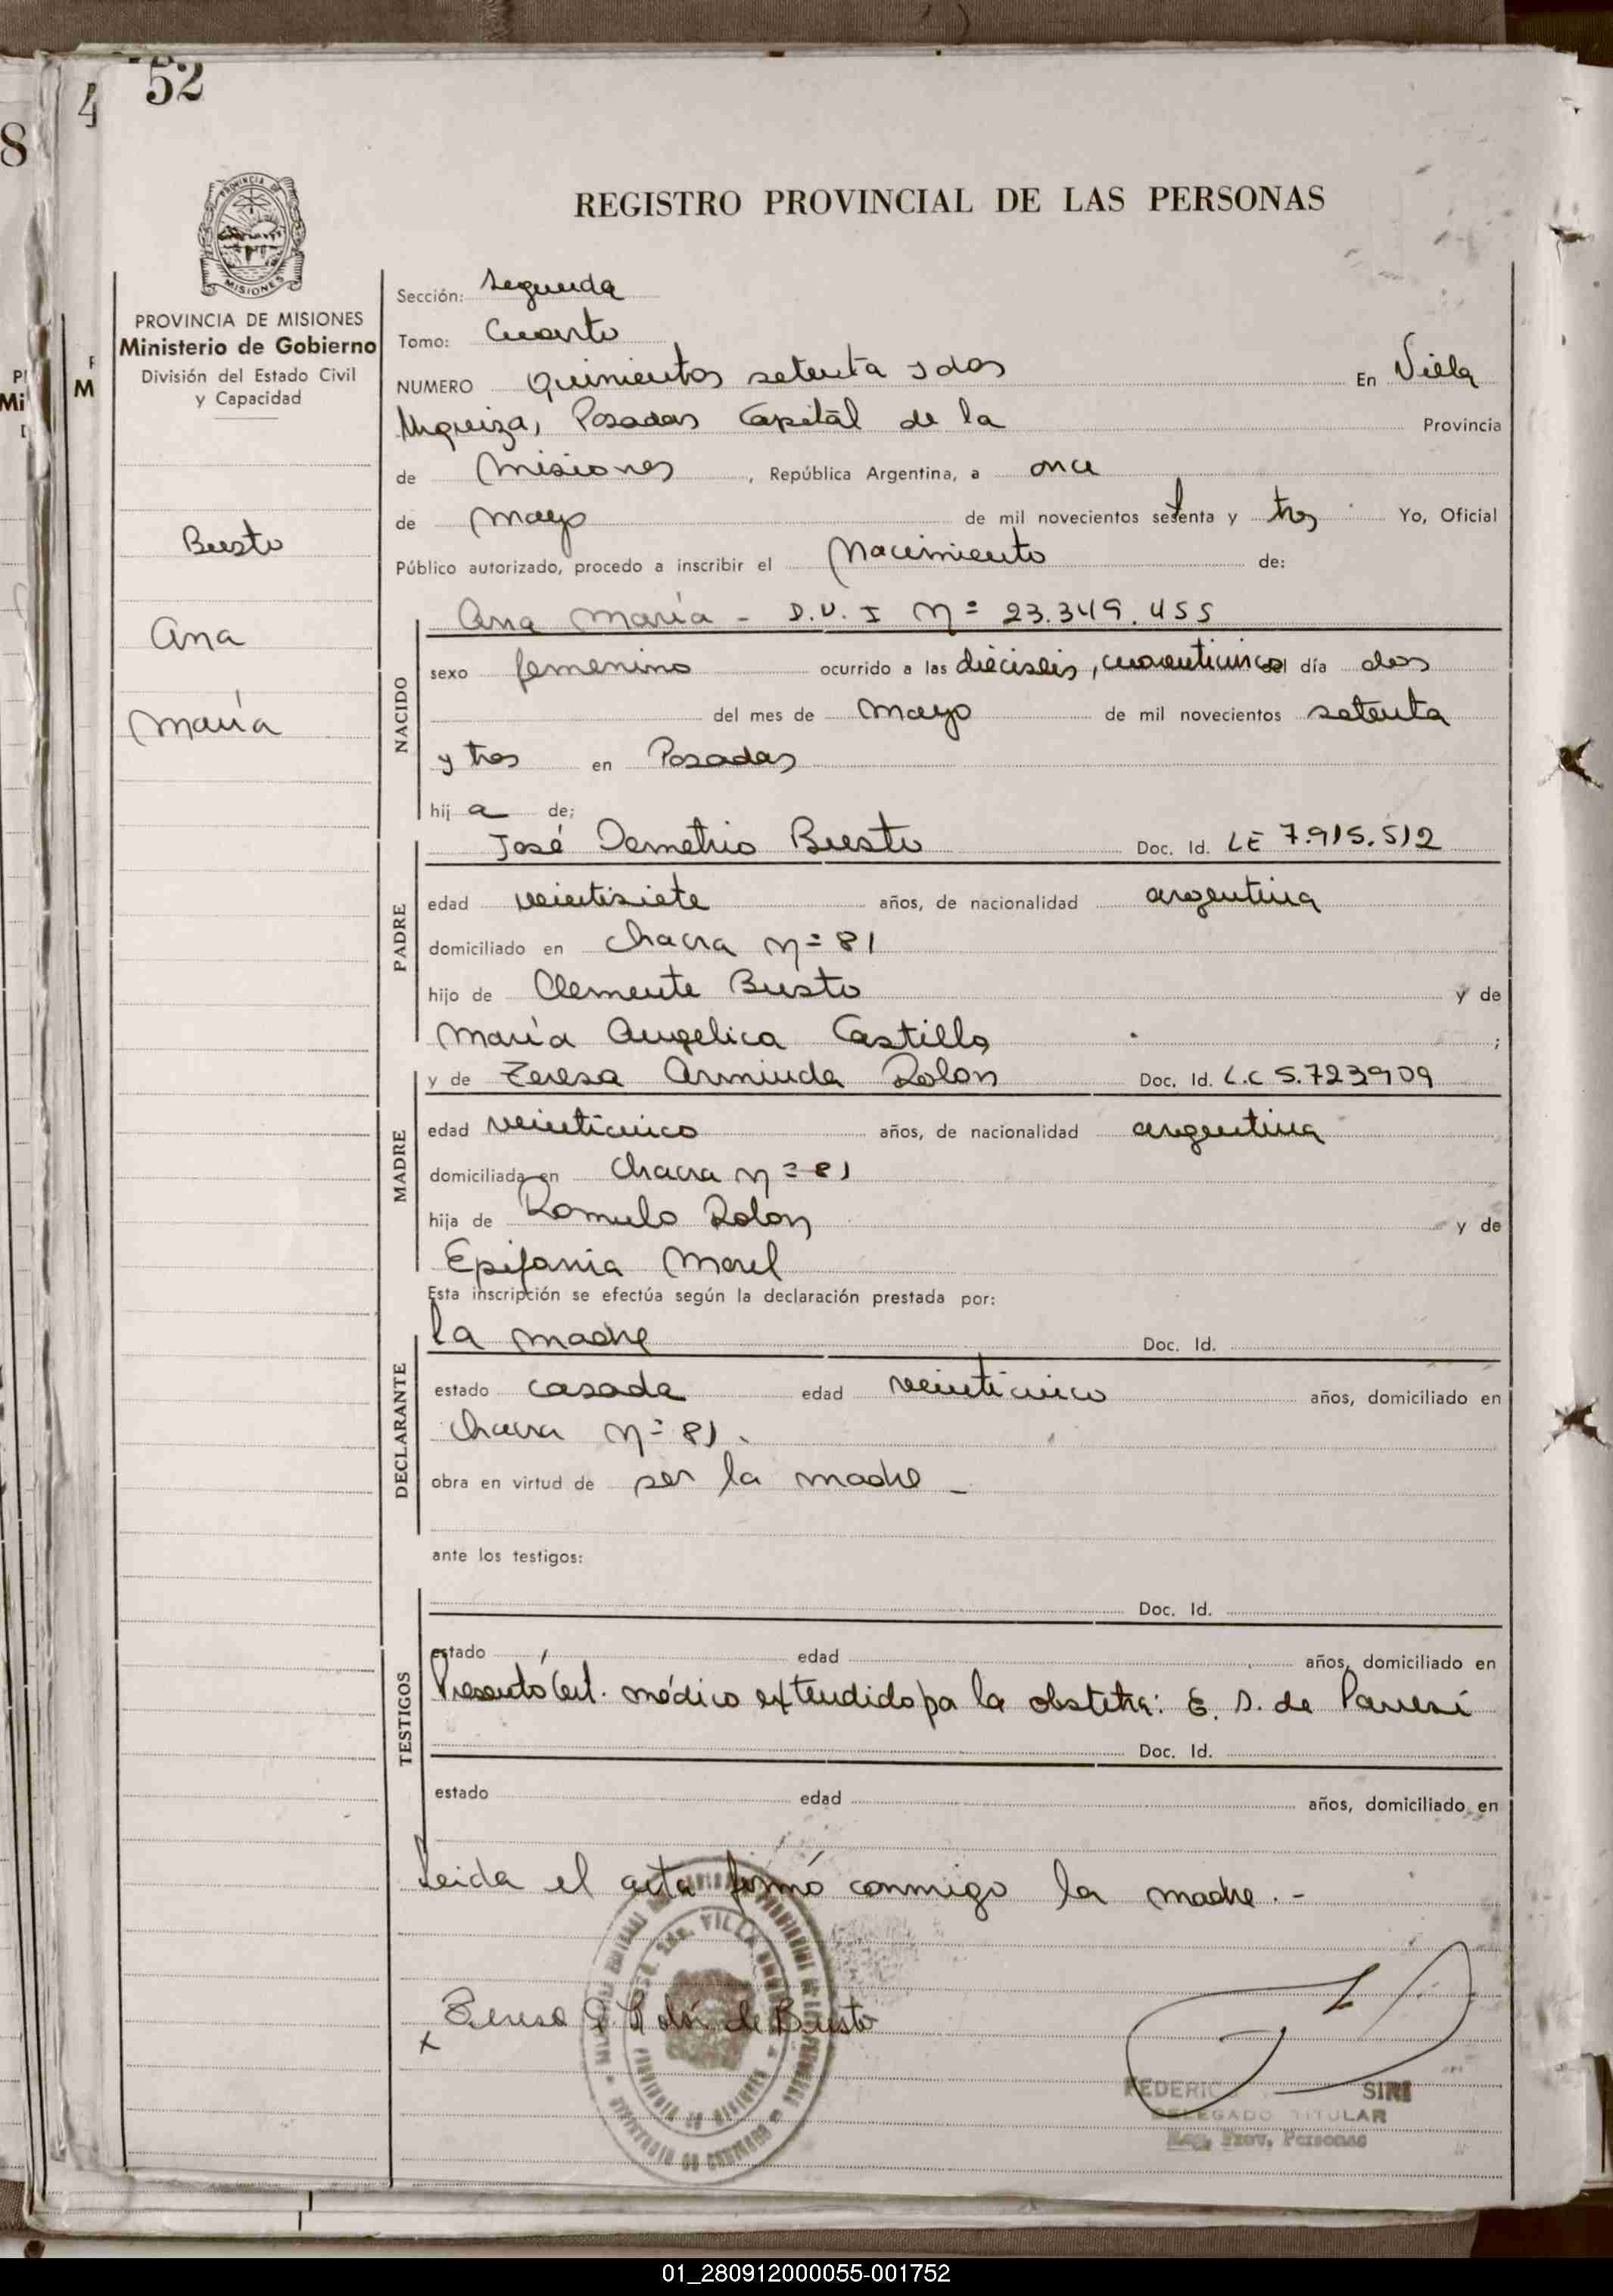 52
4
8
REGISTRO PROVINCIAL DE LAS PERSONAS
PROVINCIA DE MISIONES
Ministerio de Gobierno
División del Estado Civil
y Capacidad
Busto
Ana
María
Sección: Segunda
Tomo: Cuarto
NUMERO Quinientos setenta y dos En Villa
Urquiza, Posadas Capital de la Provincia
de Misiones, República Argentina, a once
de mayo de mil novecientos setenta y tres Yo, Oficial
Público autorizado, procedo a inscribir el Nacimiento de:
Ana María - D.U.I Nº 23.349.455
NACIDO
sexo femenino ocurrido a las dieciseis, cuarenticinco del día dos
del mes de mayo de mil novecientos setenta
y tres en Posadas
hij a de;
José Demetrio Busto Doc. Id. LE 7.915.512
PADRE
edad veintisiete años, de nacionalidad argentina
domiciliado en Chacra Nº 81
hijo de Clemente Busto y de
María Angelica Castillo ;
y de Teresa Arminda Rolon Doc. Id. L.C 5.723909
MADRE
edad veinticinco años, de nacionalidad argentina
domiciliada en Chacra Nº 81
hija de Romulo Rolon y de
Epifania Morel
Esta inscripción se efectúa según la declaración prestada por:
la madre Doc. Id.
DECLARANTE
estado casada edad veinticinco años, domiciliado en
Chacra Nº 81.
obra en virtud de ser la madre -
ante los testigos:
Doc. Id.
TESTIGOS
estado edad años, domiciliado en
Presentó Cert. médico extendido por la obstetra: E. S. de
Doc. Id.
estado edad años, domiciliado en
Leida el acta firmó conmigo la madre. -
Teresa Rolón de Busto
x
FEDERIC SIRI
DELEGADO TITULAR
Reg. Prov. Personas
01_280912000055-001752